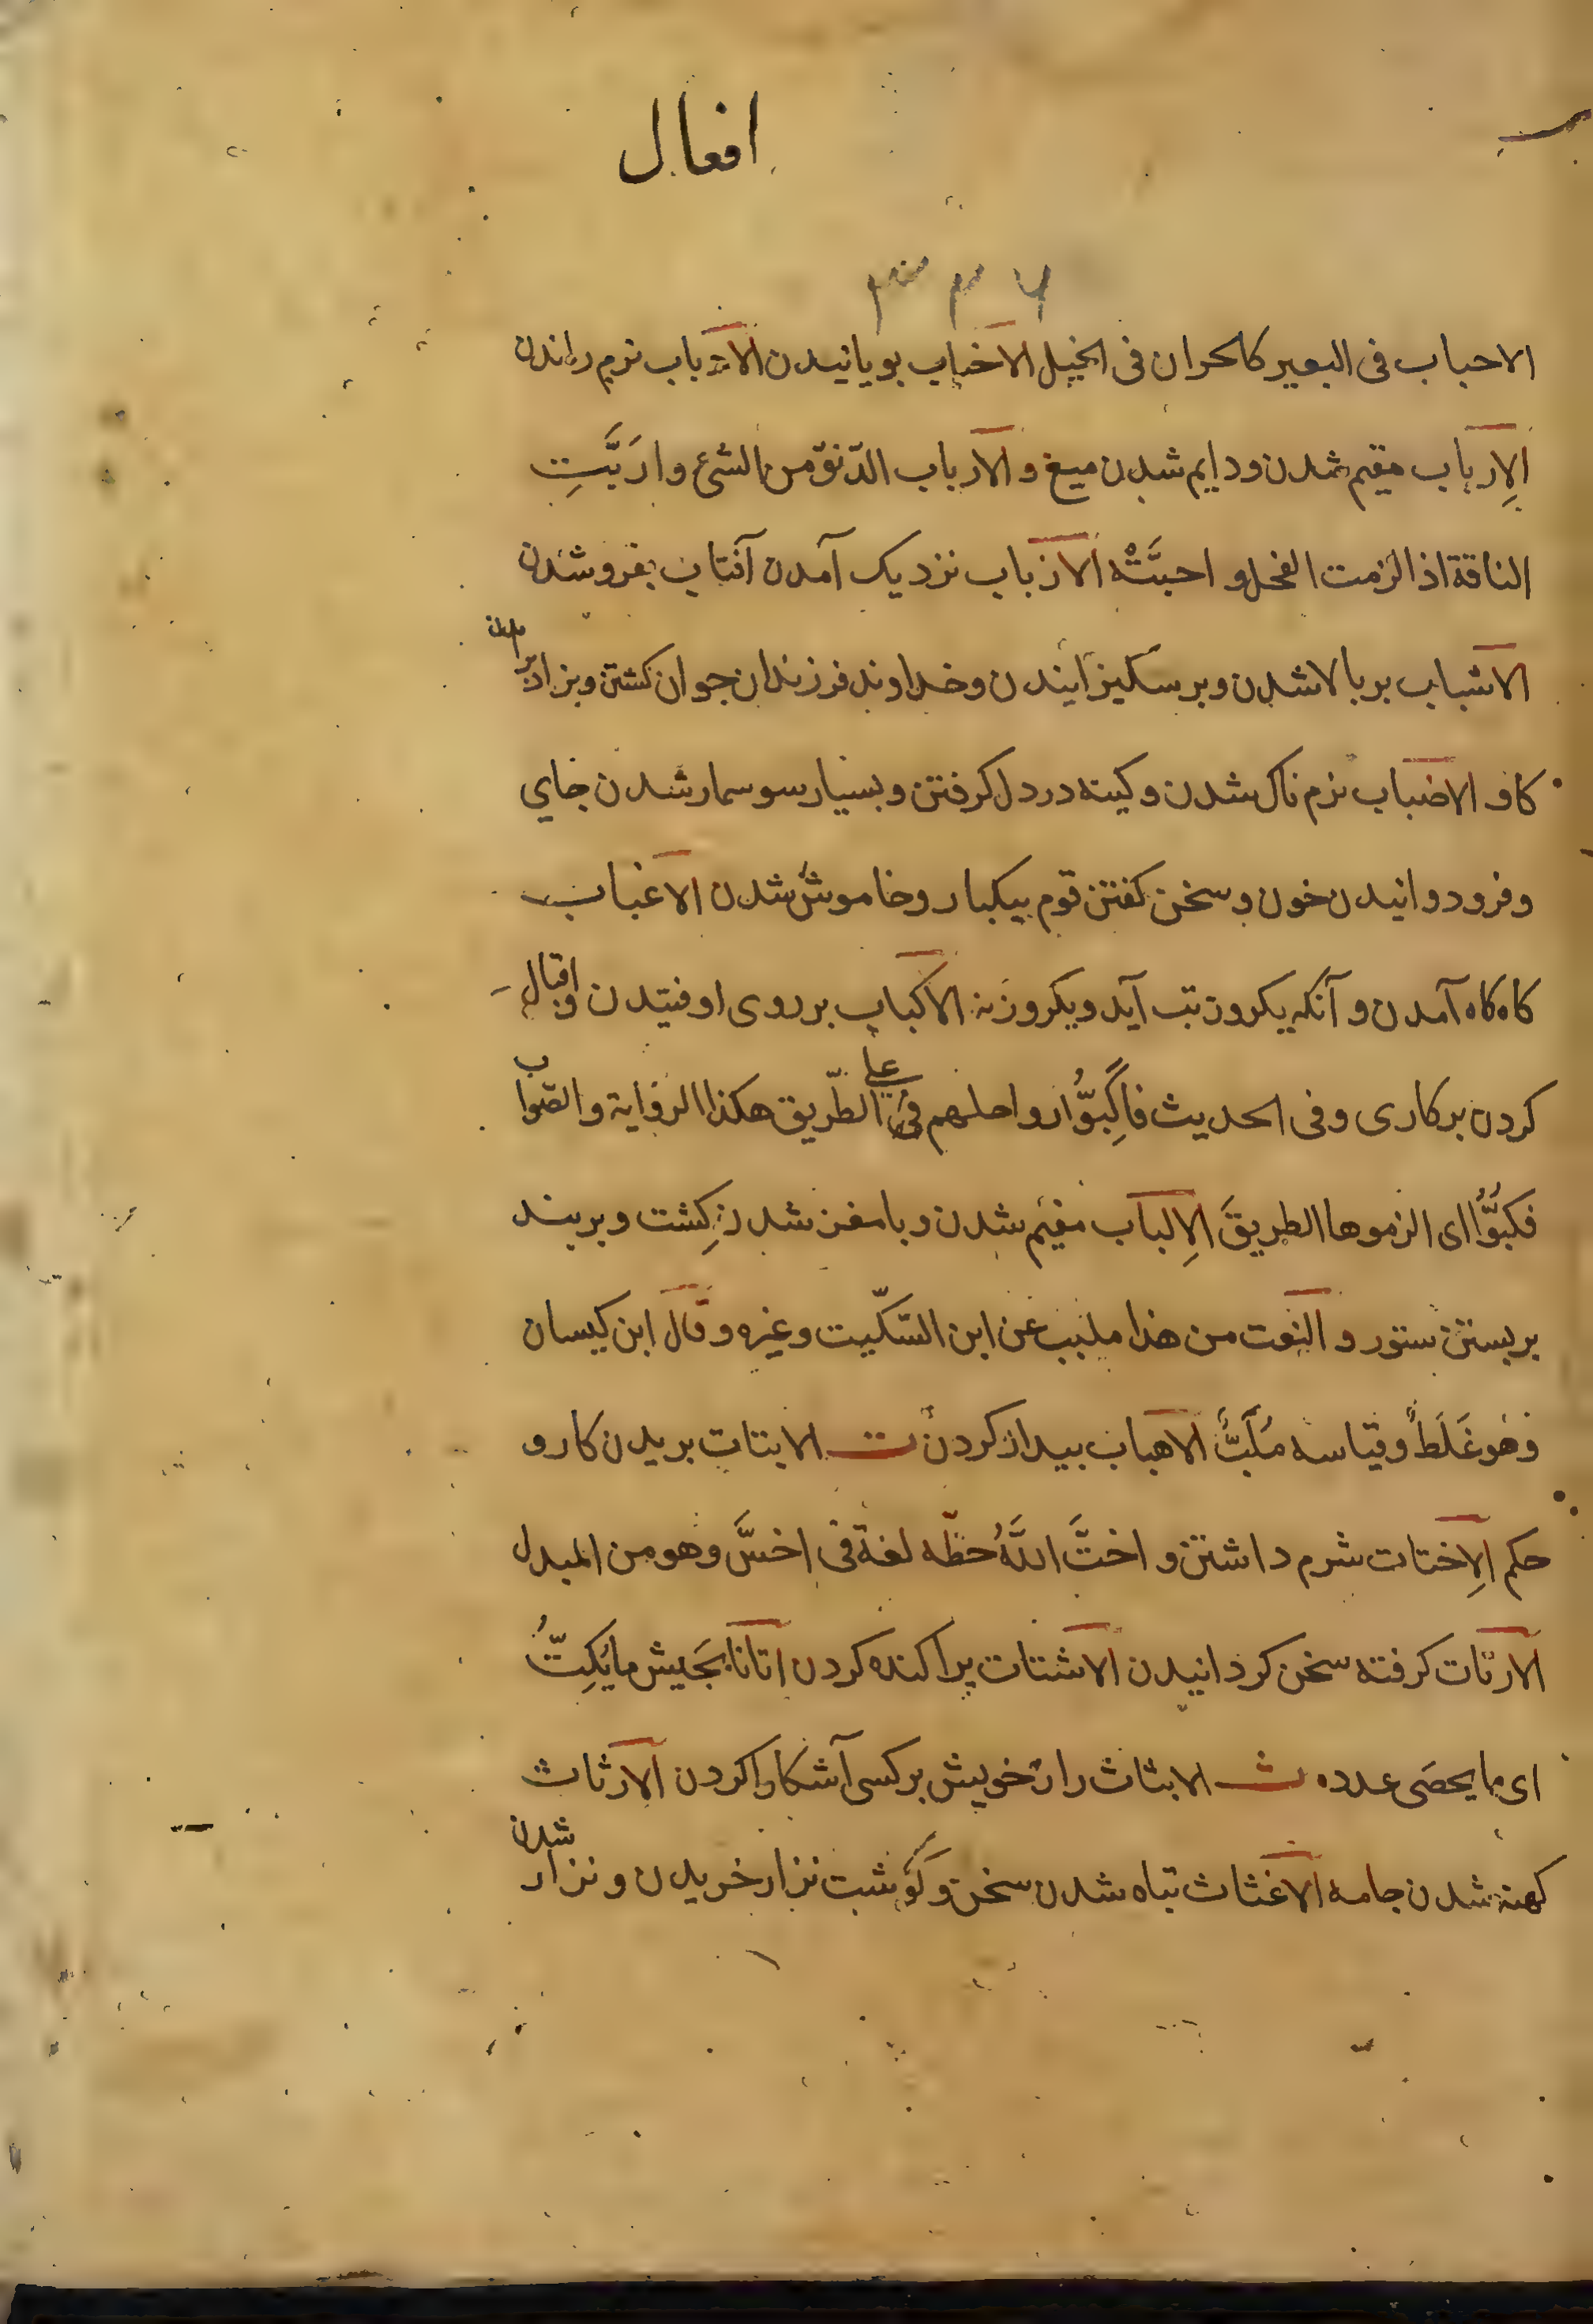 افعال
۳۳۶
الاحباب فی البعیر کالحران فی الخیل الاخباب بویانیدن الادباب نرم راندن
الِارباب مقیم شدن و دایم شدن میغ و الارباب الدّنوّ من الشیء و ارَبَّتِ
الناقة اذا لزمت الفحل و احبَّتْه الازباب نزدیک آمدن آفتاب بفرو شدن
الاشباب بر بالا شدن و بر سکیزانیدن و خداوند فرزندان جوان کشتن و بزاد بر
کاو الاضباب نزم ناک شدن و کینه در دل کرفتن و بسیار سوسمار شدن جای
و فرو دوانیدن خون و سخن کفتن قوم بیکبار و خاموش شدن الاغباب
کاه کاه آمدن و آنکه یکروز تب آید و یکروز نه الاکباب بر روی اوفتیدن و اقبال
کردن بر کاری و فی الحدیث فاَکِبُّوا رواحلهم علی الطّریق هکذا الروایة و الصّواب
فکبُّوا ای الزموها الطریقَ الِالباب مقیم شدن و با مغز شدن کِشت و بر بند
بر بستن ستور و النعت من هذا ملبب عن ابن السّکّیت و غیره و قال ابن کیسان
و هُو غَلَطٌ و قیاسه مُلَبٌّ الاهباب بیدار کردن ت الابتات بریدن کار و
حکم الِاختات شرم داشتن و اختَّ اللَّهُ حظّه لغة فی اخسَّ و هو من المبدل
الارتات کرفته سخن کردانیدن الاشتات پراکنده کردن اتانا بجَیش ما یُکِتُّ
ای ما یحصَی عدده ث الابثاث راز خویش بر کسی آشکارا کردن الارثاث
کهنه شدن جامه الاغثاث تباه شدن سخن و کَوشت نزار خریدن و نزار شدن